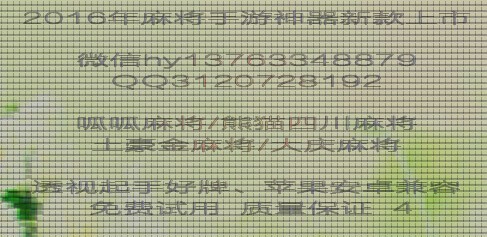 2016年麻将手游神器新款上市
微信hy13763348879
QQ3120728192
呱呱麻将/熊猫四川麻将
土豪金麻将/大庆麻将
透视起手好牌、苹果安卓兼容
免费试用 质量保证 4